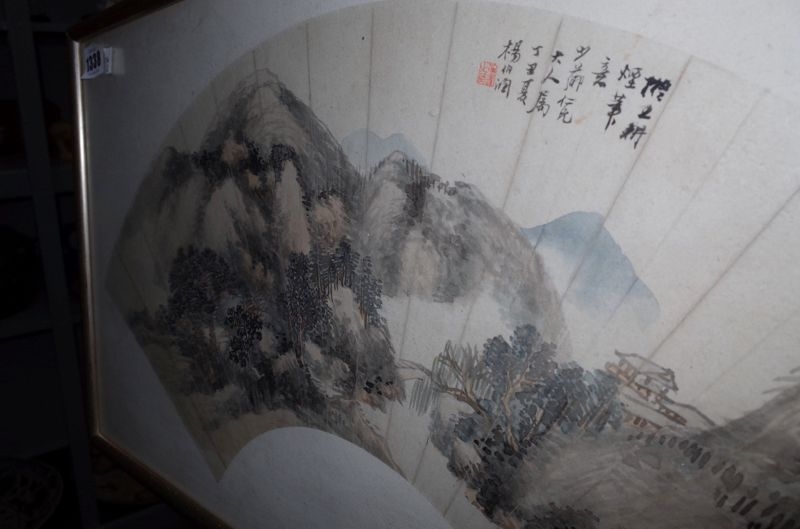 1338
擬王耕
煙筆
意
少茆仁兄
大人屬
丁丑夏
楊伯潤